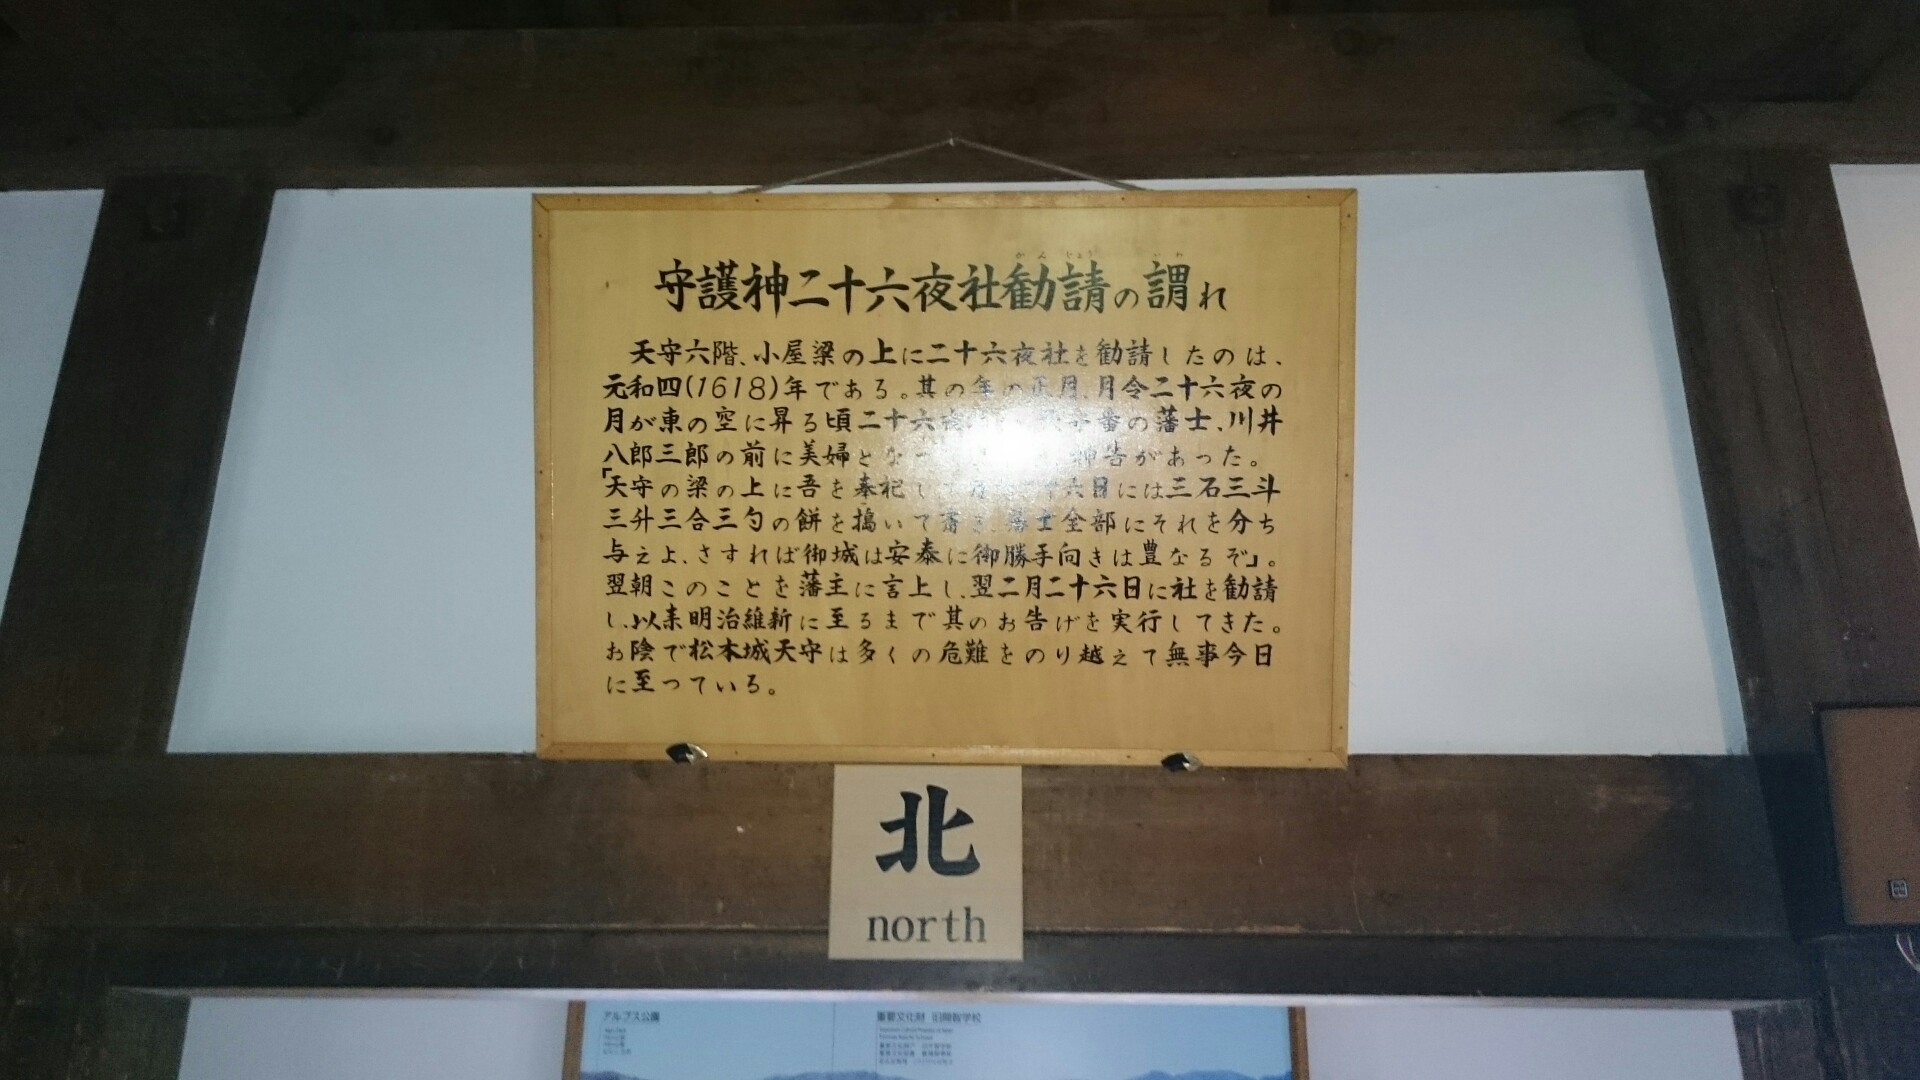 守護神二十六夜社勧請の謂れ
天守六階、小屋梁の上に二十六夜社を勧請したのは、
元和四(1618)年である。其の年の正月、月令二十六夜の
月が東の空に昇る頃二十六夜 番の藩士、川井
八郎三郎の前に美婦とな 神告があった。
「天守の梁の上に吾を奉祀し 六日には三石三斗
三升三合三勺の餅を搗いて 藩士全部にそれを分ち
与えよ、さすれば御城は安泰に御勝手向きは豊なるぞ」。
翌朝このことを藩主に言上し、翌二月二十六日に社を勧請
し、以来明治維新に至るまで其のお告げを実行してきた。
お陰で松本城天守は多くの危難をのり越えて無事今日
に至っている。
北
north
アルプス公園
重要文化財 旧開智学校